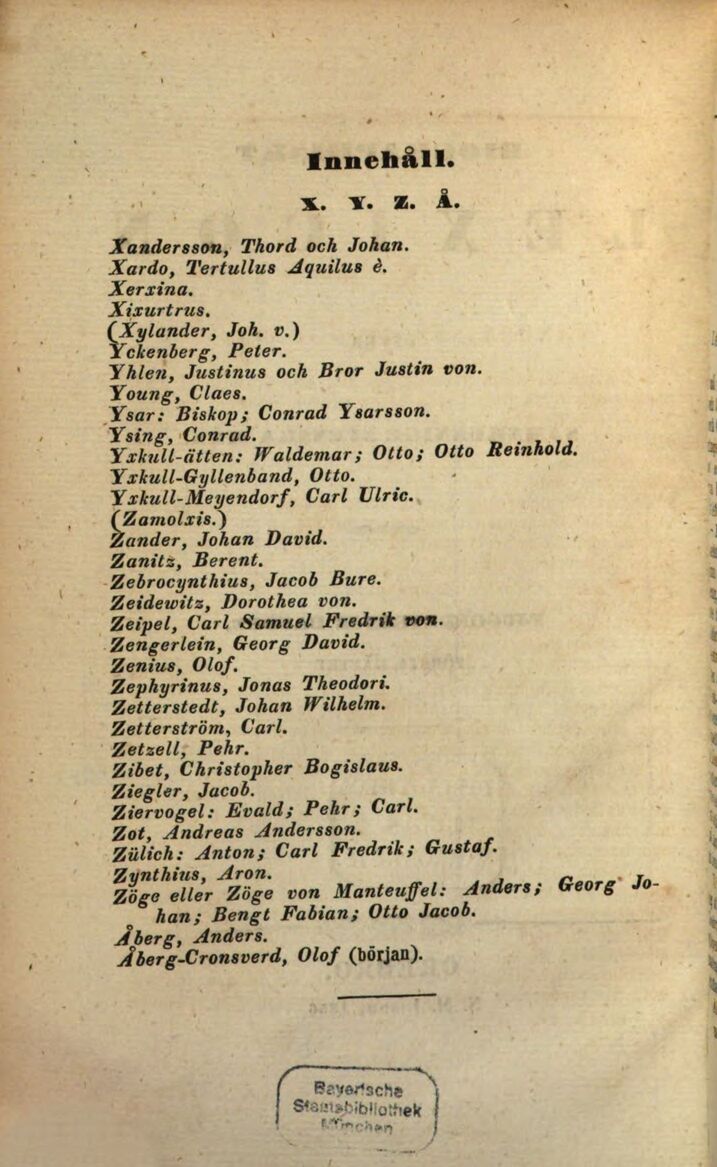 Innehåll.
X. Y. Z. Å.
Xandersson, Thord och Johan.
Xardo, Tertullus Aquilus è.
Xerxina.
Xixurtrus.
(Xylander, Joh. v.)
Yckenberg, Peter.
Yhlen, Justinus och Bror Justin von.
Young, Claes.
Ysar: Biskop; Conrad Ysarsson.
Ysing, Conrad.
Yxkull-ätten: Waldemar; Otto; Otto Reinhold.
Yxkull-Gyllenband, Otto.
Yxkull-Meyendorf, Carl Ulric.
(Zamolxis.)
Zander, Johan David.
Zanitz, Berent.
Zebrocynthius, Jacob Bure.
Zeidewitz, Dorothea von.
Zeipel, Carl Samuel Fredrik von.
Zengerlein, Georg David.
Zenius, Olof.
Zephyrinus, Jonas Theodori.
Zetterstedt, Johan Wilhelm.
Zetterström, Carl.
Zetzell, Pehr.
Zibet, Christopher Bogislaus.
Ziegler, Jacob.
Ziervogel: Evald; Pehr; Carl.
Zot, Andreas Andersson.
Zülich: Anton; Carl Fredrik; Gustaf.
Zynthius, Aron.
Zöge eller Zöge von Manteuffel: Anders; Georg Jo-
han; Bengt Fabian; Otto Jacob.
Åberg, Anders.
Åberg-Cronsverd, Olof (början).
Bayerische
Staatsbibliothek
München